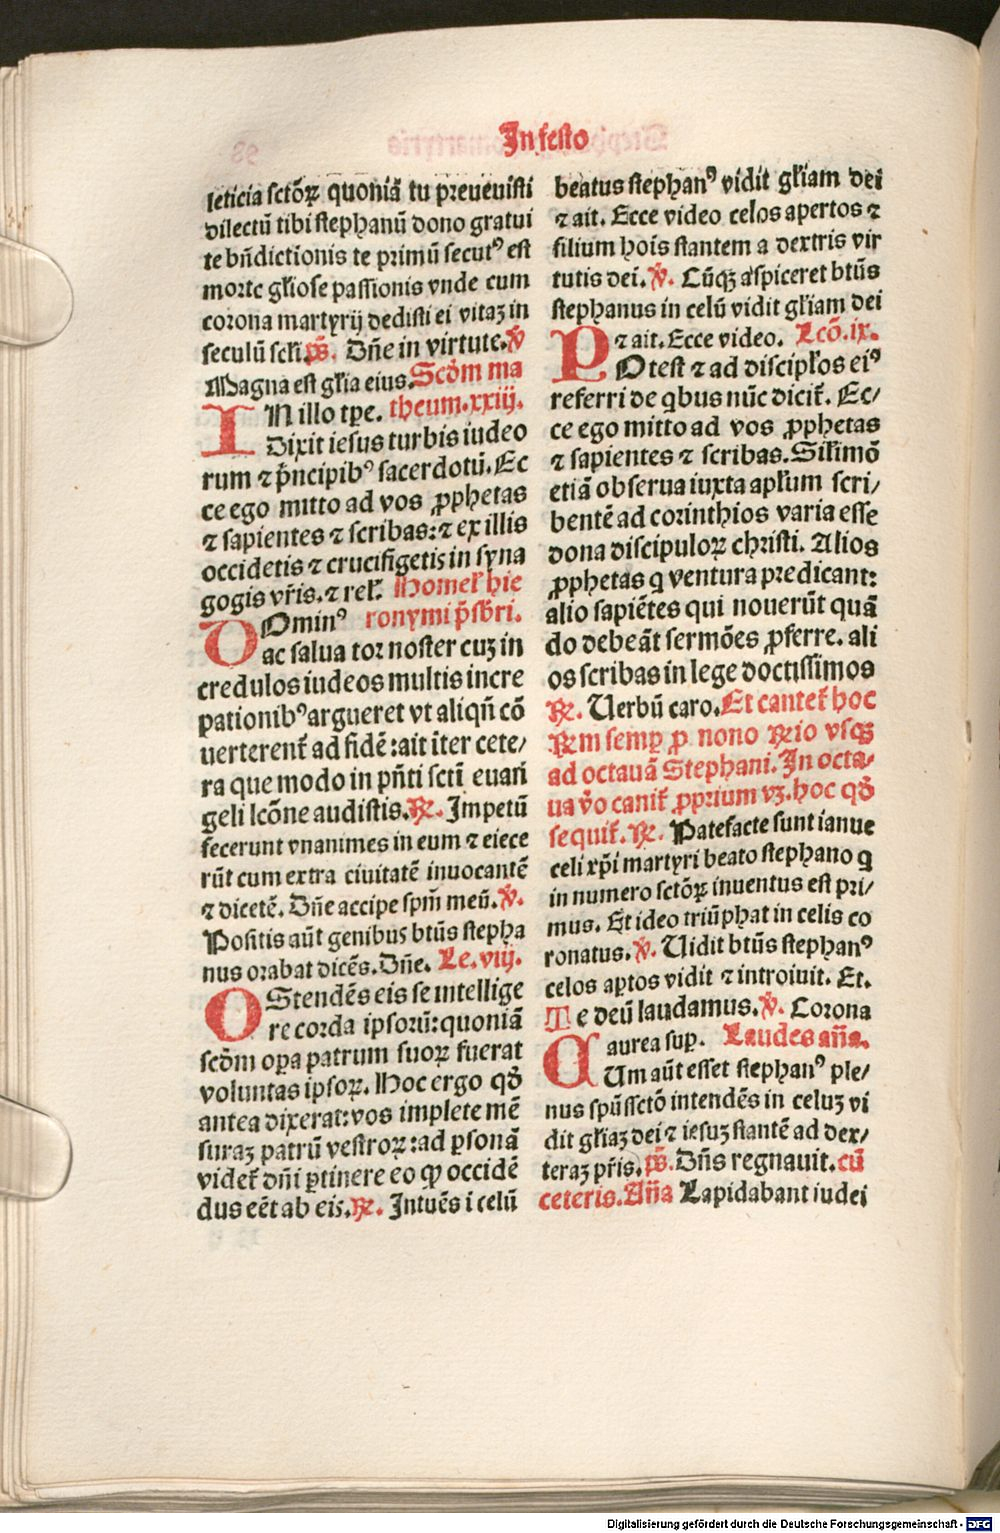 In festo
leticia sctõꝝ quoniã tu preuenisti
dilectũ tibi stephanũ dono gratui
te bñdictionis te primũ secutꝰ est
morte gl̃iose passionis vnde cum
corona martyrij dedisti ei vitaʒ in
seculũ scl̃i. p̃s. Dñe in virtute. v̾
Magna est gl̃ia eius. Scd̾m ma
IN illo tp̄e. theum. xxiij.
Dixit iesus turbis iudeo
rum ⁊ p̃ncipibꝰ sacerdotũ. Ec
ce ego mitto ad vos ꝓphetas
⁊ sapientes ⁊ scribas: ⁊ ex illis
occidetis ⁊ crucifigetis in syna
gogis vr̃is. ⁊ rel̃. Homel̃ hie
DOminꝰ ronymi p̃sbr̃i.
ac salua tor noster cuʒ in
credulos iudeos multis incre
pationibꝰ argueret vt aliqñ cõ
uerterent̃ ad fidẽ: ait ĩter cete/
ra que modo in pñti scti euañ
geli lcõne audistis. ℞. Impetũ
fecerunt vnanimes in eum ⁊ eiece
rũt cum extra ciuitatẽ inuocantẽ
⁊ dicetẽ. Dñe accipe spm̃ meũ. v̾.
Positis aũt genibus btũs stepha
nus orabat dicẽs. Dñe. Le. viij.
OStendẽs eis se intellige
re corda ipsorũ: quoniã
scd̾m oꝑa patrum suoꝝ fuerat
voluntas ipsoꝝ. Hoc ergo qđ
antea dixerat: vos implete mẽ
suraʒ patrũ vestroꝝ: ad ꝑsonã
videt̃ dñi ꝑtinere eo ꝙ occidẽ
dus eẽt ab eis. ℞. Intuẽs i celũ
beatus stephanꝰ vidit gl̃iam dei
⁊ ait. Ecce video celos apertos ⁊
filium hoĩs stantem a dextris vir
tutis dei. v̾. Cũqꝫ aspiceret btũs
stephanus in celũ vidit gl̃iam dei
⁊ ait. Ecce video. Lcõ. ix.
POtest ⁊ ad discipl̃os eiꝰ
referri de qbus nũc dicit̃. Ec/
ce ego mitto ad vos ꝓphetas
⁊ sapientes ⁊ scribas. Sil̃imõ
etiã obserua iuxta apl̃um scri/
bentẽ ad corinthios varia esse
dona discipuloꝝ christi. Alios
ꝓphetas q ventura predicant:
alio sapiẽtes qui nouerũt quã
do debeãt sermões ꝓferre. ali
os scribas in lege doctissimos
℞. Uerbũ caro. Et cantet̃ hoc
℞m semꝑ ꝓ nono ℞io vsqꝫ
ad octauã Stephani. In octa/
ua v̾o canit̃ ꝓprium vʒ. hoc qđ
sequit̃. ℞. Patefacte sunt ianue
celi xp̃i martyri beato stephano q
in numero sctõꝝ inuentus est pri/
mus. Et ideo triũphat in celis co
ronatus. v̾. Uidit btũs stephanꝰ
celos aꝑtos vidit ⁊ introiuit. Et.
Te deũ laudamus. v̾. Corona
aurea suꝑ. Laudes añã.
CUm aũt esset stephanꝰ ple/
nus spũssctõ intendẽs in celuʒ vi
dit gl̃iaʒ dei ⁊ iesuʒ stantẽ ad dex/
teraʒ pr̃is. p̃s. Dñs regnauit. cũ
ceteris. Añã Lapidabant iudei
Digitalisierung gefördert durch die Deutsche Forschungsgemeinschaft - DFG